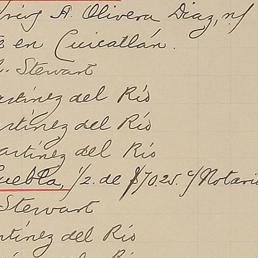 A. Olivera Diaz, n/
en Cuicatlán.
Stewart
artínez del Río
artínez del Río
artínez del Río
uebla, 1/2. de $70.25. c/ Notari
Stewart
rtínez del Río